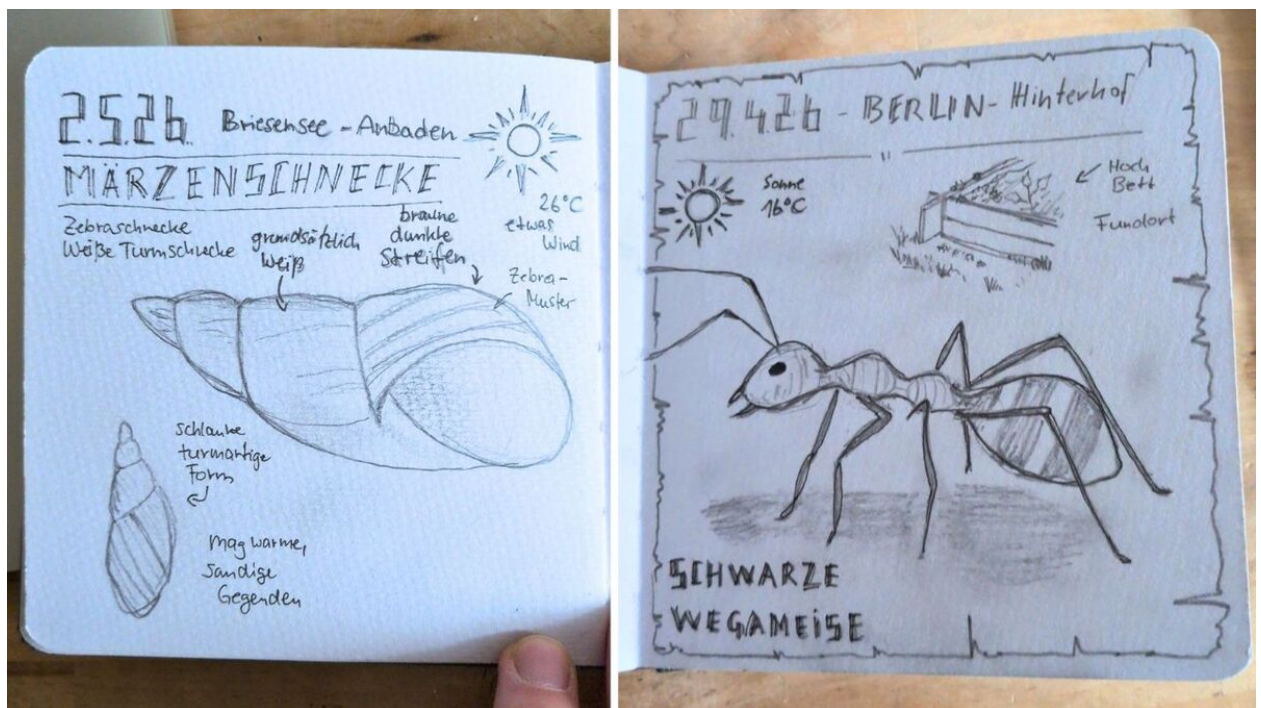 2.5.26. Briesensee - Anbaden
MÄRZENSCHNECKE
Zebraschnecke
Weiße Turmschnecke
grundsätzlich
weiß
braune
dunkle
Streifen
26°C
etwas
Wind
Zebra-
Muster
schlanke
turmartige
Form
Mag warme,
sandige
Gegenden
29.4.26 - BERLIN - Hinterhof
Sonne
16°C
Hoch
Bett
Fundort
SCHWARZE
WEGAMEISE